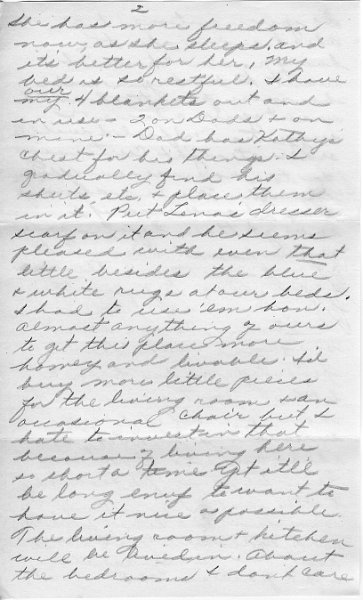 2
She has more freedom
now, as she sleeps, and
it's better for her. My
bed is so restful. I have
our
my 4 blankets out and
in use - 2 on Dads & on
mine. - Dad has Kathy's
chest for his things. I
gradually find his
shirts, etc. & place them
in it. Put Lena's dresser
scarf on it and he seems
pleased with even that
little besides the blue
& white rugs at our beds.
I had to use 'em hon.
Almost anything of ours
to get this place more
homey and livable. I'd
buy more little pieces
for the living room & an
occasional chair but I
hate to invest in that
because of living here
so short a time yet it'll
be long enuf to want to
have it nice as possible.
The living room & kitchen
will be lived in. About
the bedrooms I dont care